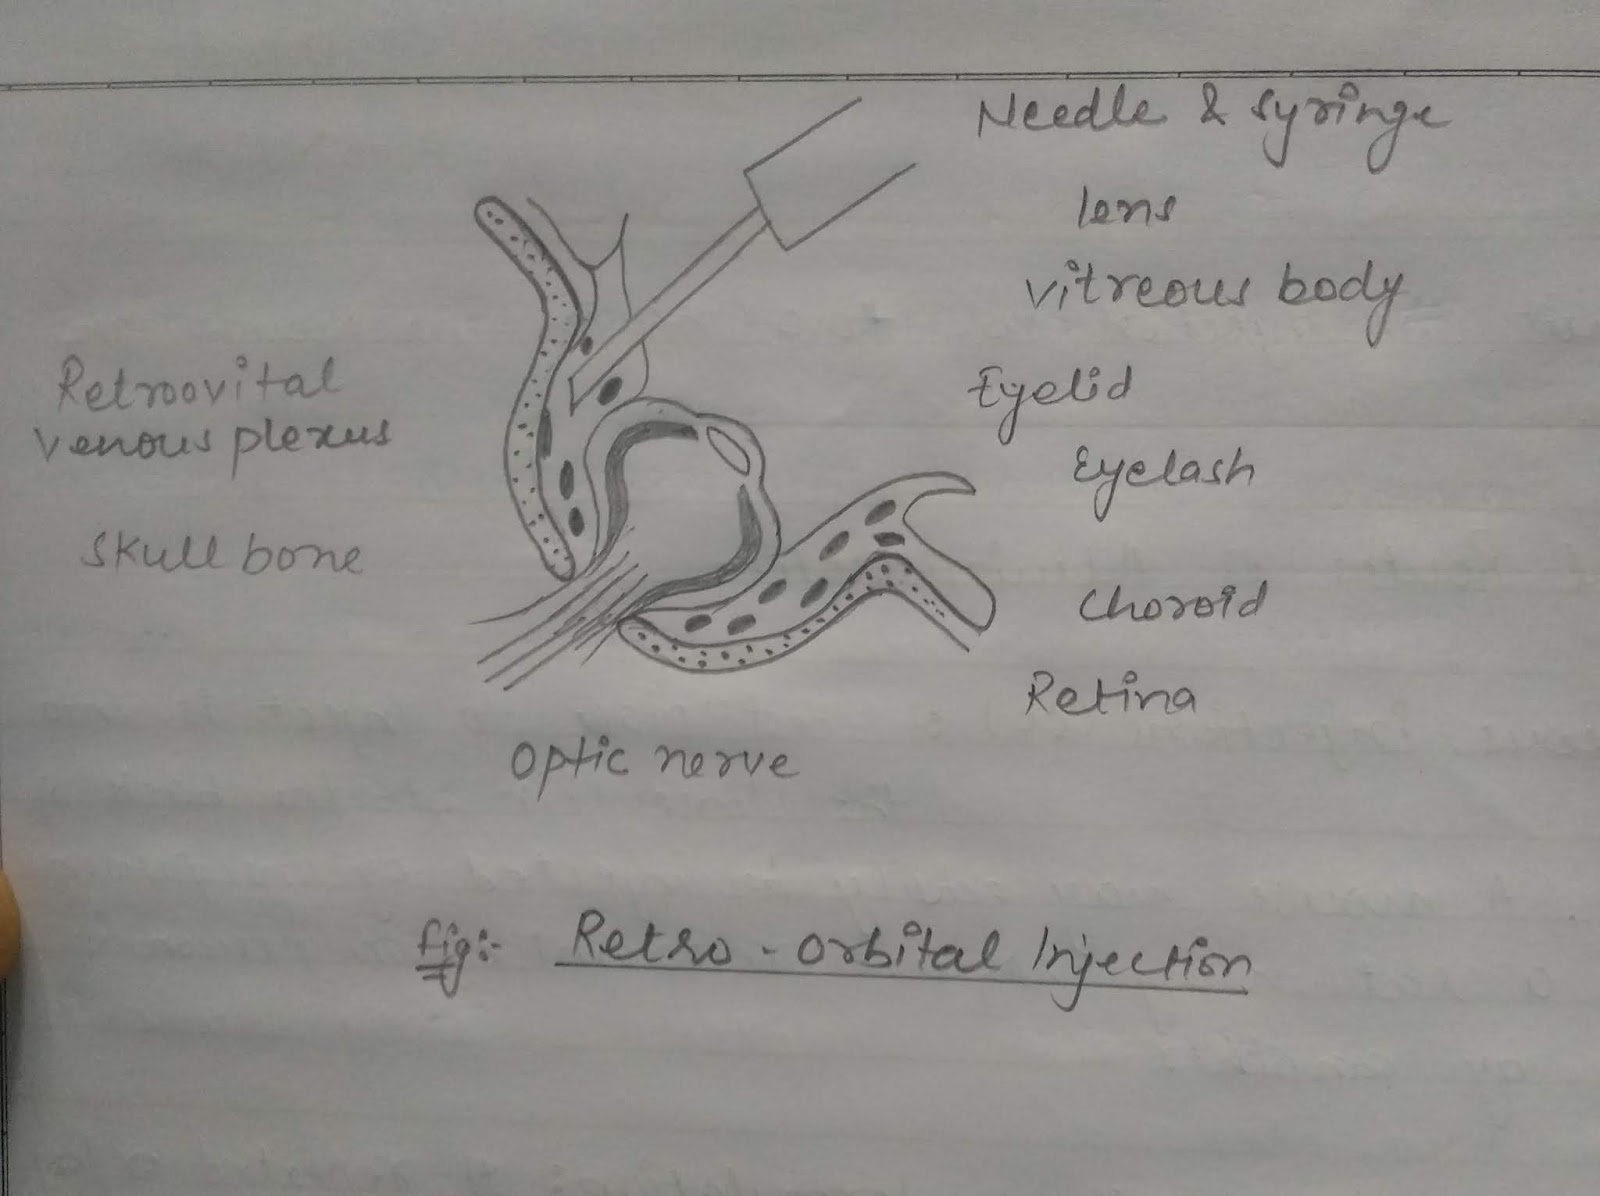 Needle & Syringe
lens
vitreous body
Retroovital
venous plexus
Eyelid
Eyelash
Skull bone
Choroid
Retina
Optic nerve
fig:- Retro - orbital Injection